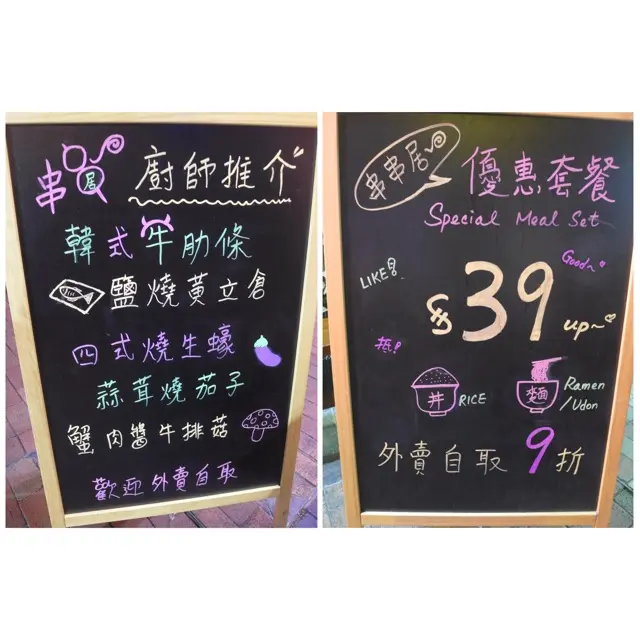 串串居 廚師推介
韓式牛肋條
鹽燒黃立倉
四式燒生蠔
蒜茸燒茄子
蟹肉醬牛排菇
歡迎外賣自取
串串居 優惠套餐
Special Meal Set
LIKE!
Good~
$39 up~
抵!
丼 RICE
麵 Ramen
/Udon
外賣自取9折